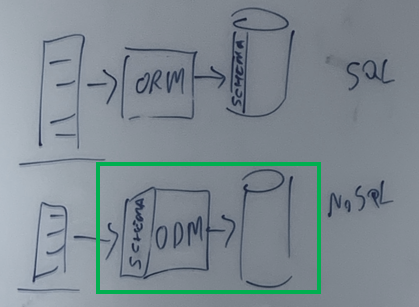 ORM
SCHEMA
SQL
SCHEMA
ODM
NoSQL